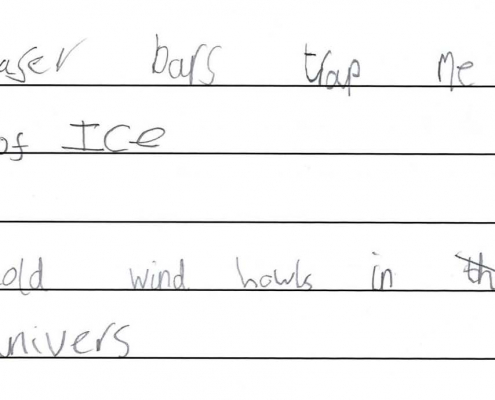 aser bars trap me
of ICe
old wind howls in th
nivers